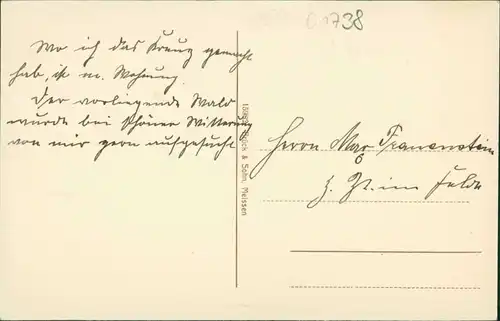 738
Wo ich das Kreuz gemacht
hab, ist m. Wohnung.
Der vorliegende Wald
wurde bei schöner Witterung
von mir gern aufgesucht
& Sohn, Meissen
Herrn Max
z. Zt. im Felde